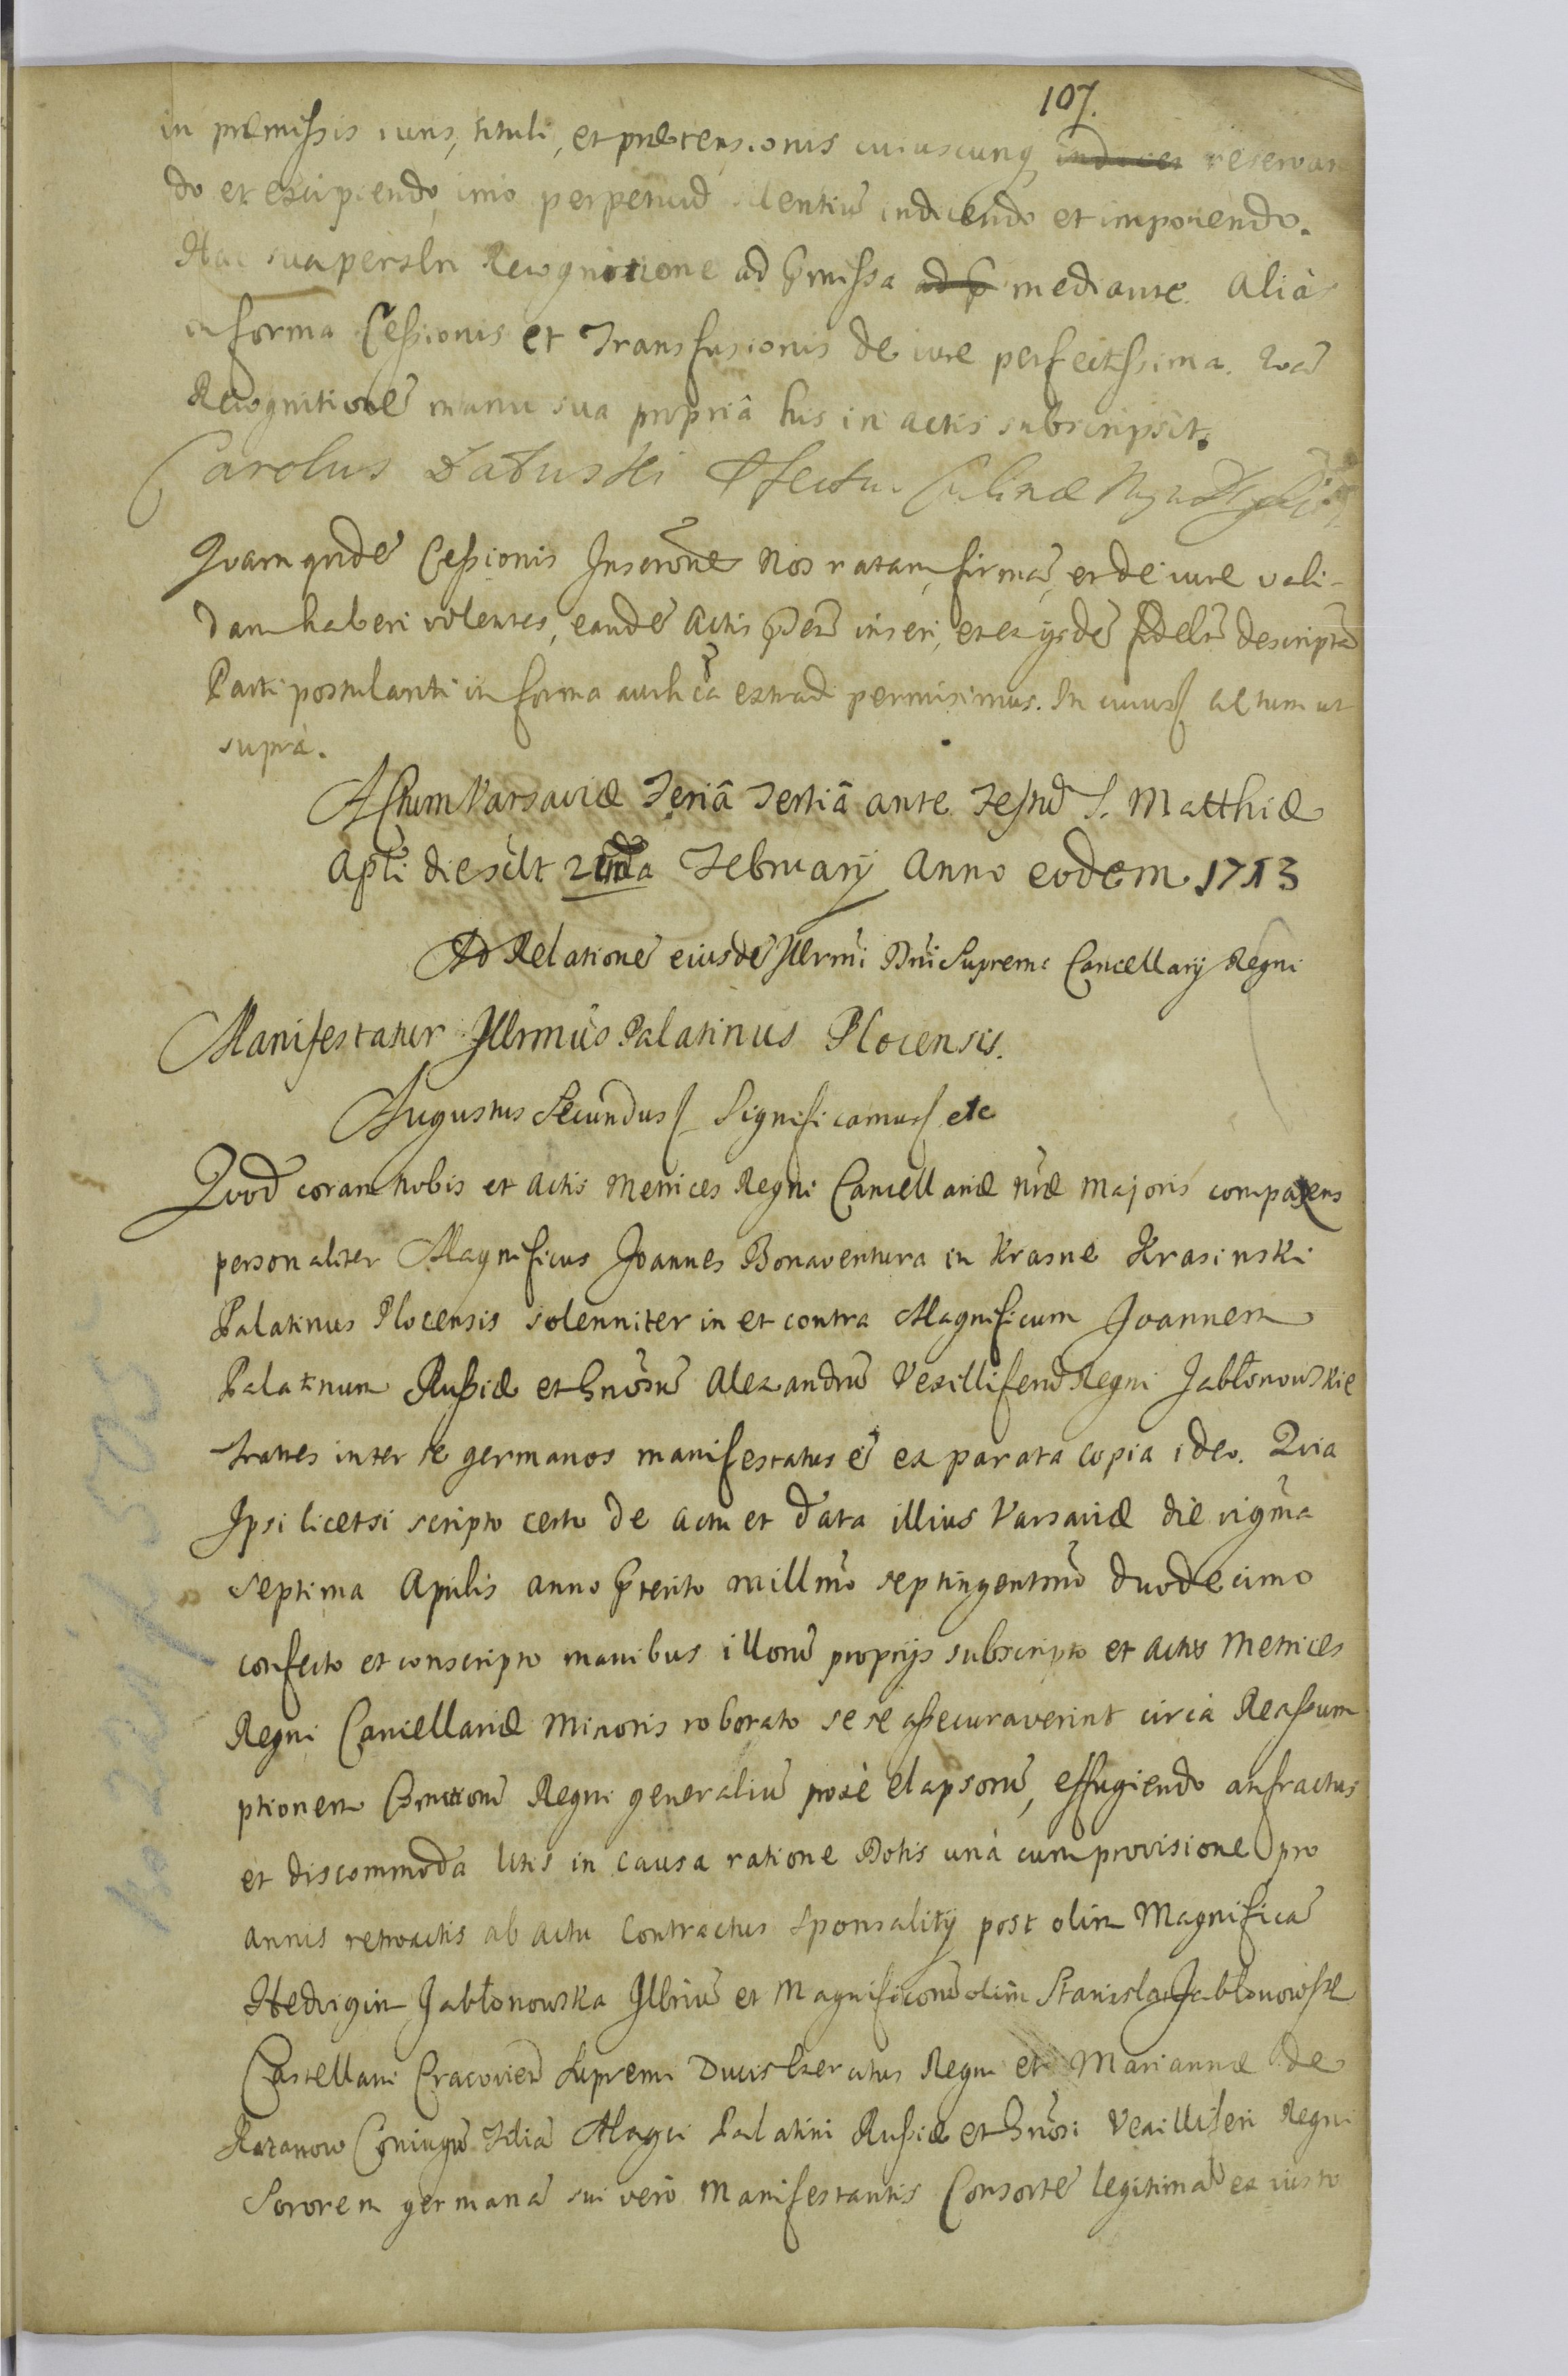 107.
in præmissis iuris, tituli, et prætensionis cuiuscunq reservan
do et excipiendo, imo perpetuũ silentiũ indicendo et imponendo.
Hac sua persãli Recognitione ad p̃missa mediante. Alias
in forma Cessionis et Transfusionis de iure perfectissima. Quã
Recognitionẽ manu sua propriâ his in actis subscripsit.
Carolus
Quam quidẽ Cessionis Inscr̃onẽ Nos ratam, firmã, et de iure vali-
dam haberi volentes, eandẽ Actis p̃ntibus inseri, et ex ijsdẽ fidelr̃ descriptã
Parti postulanti in forma auth̃ca extradi permisimus. In cuius/ actum ut
supra.
Actum Varsaviæ Feriâ Tertiâ ante Festũ S. Matthiæ
Apl̃i die scilt 21ma Februarij Anno eodem 1713
Ad Relationẽ eiusdẽ Illrm̃i Dñi Supremi Cancellarij Regni
Manifestatur Illrmũs Palatinus Plocensis.
Augustus Secundus/ Significamus/ etc
Quod coram nobis et Actis Metrices Regni Cancellariæ nr̃æ Majoris comparens
personaliter Magnificus Joannes Bonaventura in Krasne Krasinski
Palatinus Plocensis solenniter in et contra Magnificum Joannem
Palatinum Russiæ et Gnõsũ Alexandrũ Vexilliferũ Regni Jabłonowskie
fratres inter se germanos manifestatus ẽ ex parata copia ideo. Quia
Ipsi licetsi scripto certo de actu et data illius Varsaviæ die vigm̃a
septima Aprilis anno p̃terito millm̃o septingentm̃o duodecimo
confecto et conscripto manibus illorũ proprijs subscripto et actis Metrices
Regni Cancellariæ Minoris roborato se se assecuraverint circa Reassum
ptionem Comitiorũ Regni generaliũ proxè elapsorũ, effugiendo anfractus
et discommoda litis in causa ratione Dotis unà cum provisione pro
annis retroactis ab actu Contractus sponsalitij post olim Magnificã
Hedvigim Jabłonowska Illriũ et Magnificorũ olim Stanislai Jabłonowski
Castellani Cracovien̄ Supremi Ducis Exercitus Regni et Mariannæ de
Kazanow Coniugũ Filiã Magci Palatini Russiæ et Gnõsi Vexilliferi Regni
Sororem germanã sui verò Manifestantis Consortẽ legitimã ex iusto